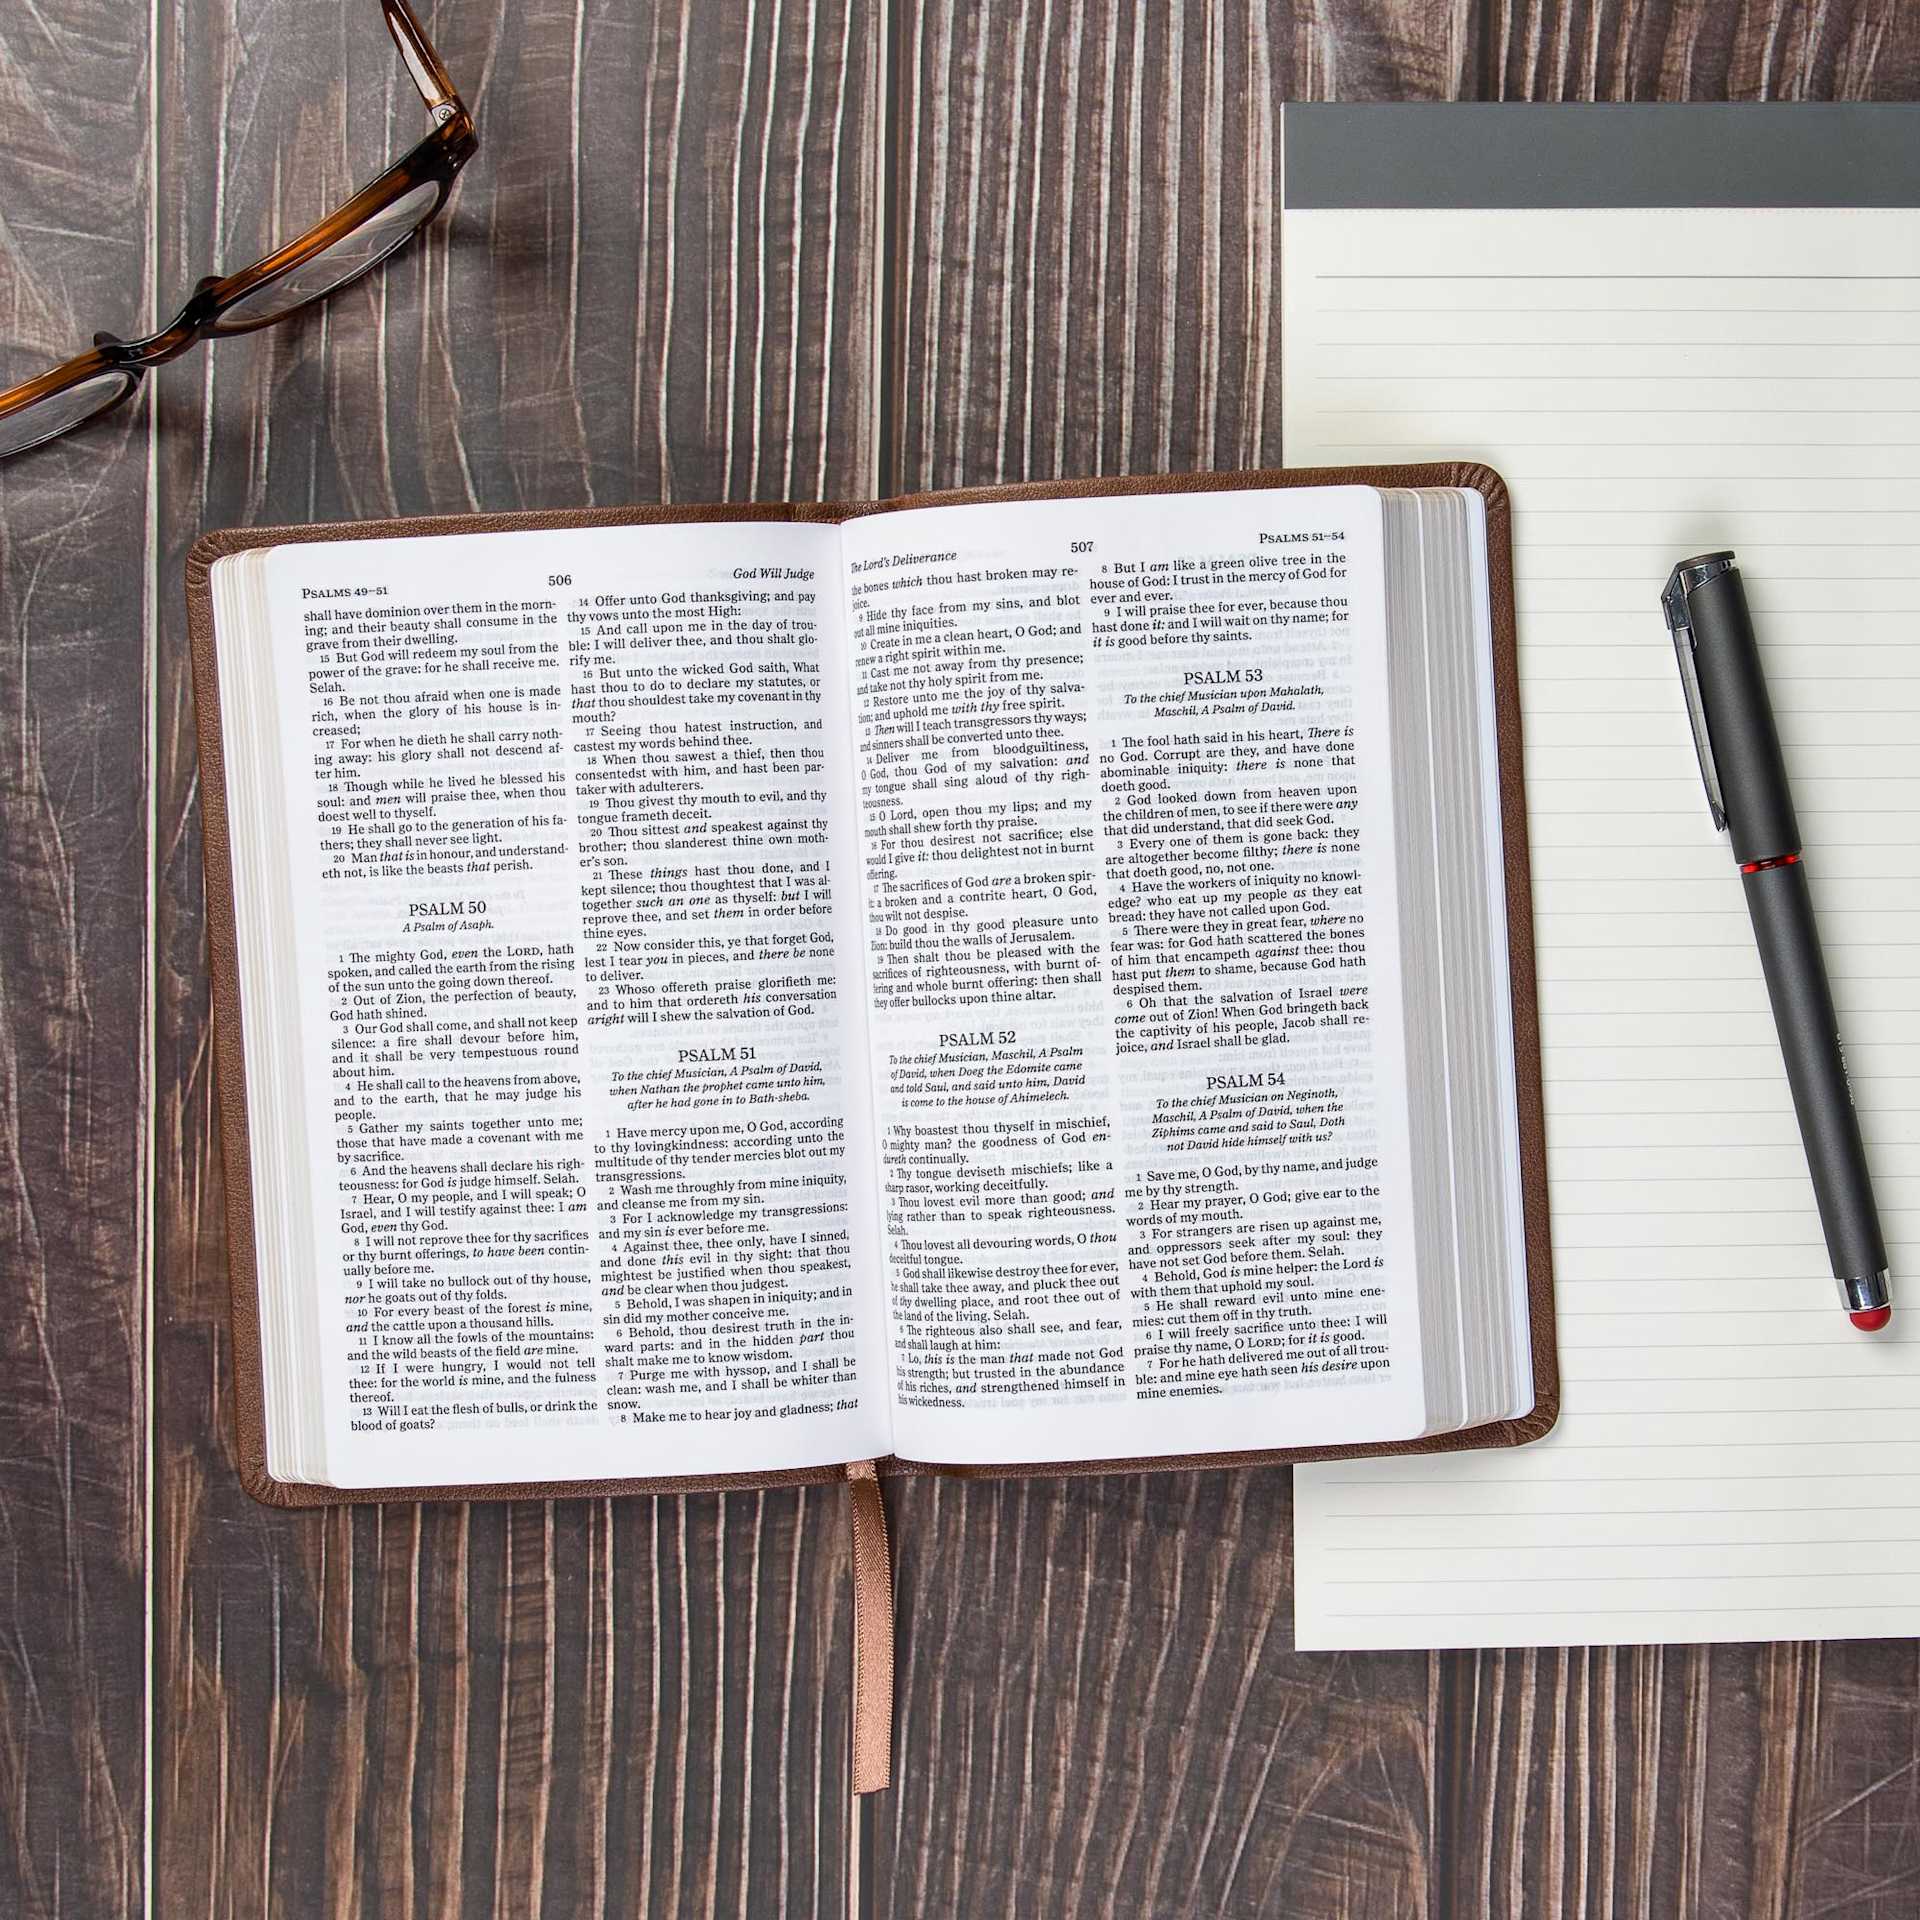 PSALMS 49–51
506
God Will Judge
shall have dominion over them in the morn-
ing; and their beauty shall consume in the
grave from their dwelling.
15 But God will redeem my soul from the
power of the grave: for he shall receive me.
Selah.
16 Be not thou afraid when one is made
rich, when the glory of his house is in-
creased;
17 For when he dieth he shall carry noth-
ing away: his glory shall not descend af-
ter him.
18 Though while he lived he blessed his
soul: and men will praise thee, when thou
doest well to thyself.
19 He shall go to the generation of his fa-
thers; they shall never see light.
20 Man that is in honour, and understand-
eth not, is like the beasts that perish.
PSALM 50
A Psalm of Asaph.
1 The mighty God, even the LORD, hath
spoken, and called the earth from the rising
of the sun unto the going down thereof.
2 Out of Zion, the perfection of beauty,
God hath shined.
3 Our God shall come, and shall not keep
silence: a fire shall devour before him,
and it shall be very tempestuous round
about him.
4 He shall call to the heavens from above,
and to the earth, that he may judge his
people.
5 Gather my saints together unto me;
those that have made a covenant with me
by sacrifice.
6 And the heavens shall declare his righ-
teousness: for God is judge himself. Selah.
7 Hear, O my people, and I will speak; O
Israel, and I will testify against thee: I am
God, even thy God.
8 I will not reprove thee for thy sacrifices
or thy burnt offerings, to have been contin-
ually before me.
9 I will take no bullock out of thy house,
nor he goats out of thy folds.
10 For every beast of the forest is mine,
and the cattle upon a thousand hills.
11 I know all the fowls of the mountains:
and the wild beasts of the field are mine.
12 If I were hungry, I would not tell
thee: for the world is mine, and the fulness
thereof.
13 Will I eat the flesh of bulls, or drink the
blood of goats?
14 Offer unto God thanksgiving; and pay
thy vows unto the most High:
15 And call upon me in the day of trou-
ble: I will deliver thee, and thou shalt glo-
rify me.
16 But unto the wicked God saith, What
hast thou to do to declare my statutes, or
that thou shouldest take my covenant in thy
mouth?
17 Seeing thou hatest instruction, and
castest my words behind thee.
18 When thou sawest a thief, then thou
consentedst with him, and hast been par-
taker with adulterers.
19 Thou givest thy mouth to evil, and thy
tongue frameth deceit.
20 Thou sittest and speakest against thy
brother; thou slanderest thine own moth-
er's son.
21 These things hast thou done, and I
kept silence; thou thoughtest that I was al-
together such an one as thyself: but I will
reprove thee, and set them in order before
thine eyes.
22 Now consider this, ye that forget God,
lest I tear you in pieces, and there be none
to deliver.
23 Whoso offereth praise glorifieth me:
and to him that ordereth his conversation
aright will I shew the salvation of God.
PSALM 51
To the chief Musician, A Psalm of David,
when Nathan the prophet came unto him,
after he had gone in to Bath-sheba.
1 Have mercy upon me, O God, according
to thy lovingkindness: according unto the
multitude of thy tender mercies blot out my
transgressions.
2 Wash me throughly from mine iniquity,
and cleanse me from my sin.
3 For I acknowledge my transgressions:
and my sin is ever before me.
4 Against thee, thee only, have I sinned,
and done this evil in thy sight: that thou
mightest be justified when thou speakest,
and be clear when thou judgest.
5 Behold, I was shapen in iniquity; and in
sin did my mother conceive me.
6 Behold, thou desirest truth in the in-
ward parts: and in the hidden part thou
shalt make me to know wisdom.
7 Purge me with hyssop, and I shall be
clean: wash me, and I shall be whiter than
snow.
8 Make me to hear joy and gladness; that
The Lord's Deliverance
507
PSALMS 51–54
the bones which thou hast broken may re-
joice.
9 Hide thy face from my sins, and blot
out all mine iniquities.
10 Create in me a clean heart, O God; and
renew a right spirit within me.
11 Cast me not away from thy presence;
and take not thy holy spirit from me.
12 Restore unto me the joy of thy salva-
tion; and uphold me with thy free spirit.
13 Then will I teach transgressors thy ways;
and sinners shall be converted unto thee.
14 Deliver me from bloodguiltiness,
O God, thou God of my salvation: and
my tongue shall sing aloud of thy righ-
teousness.
15 O Lord, open thou my lips; and my
mouth shall shew forth thy praise.
16 For thou desirest not sacrifice; else
would I give it: thou delightest not in burnt
offering.
17 The sacrifices of God are a broken spir-
it: a broken and a contrite heart, O God,
thou wilt not despise.
18 Do good in thy good pleasure unto
Zion: build thou the walls of Jerusalem.
19 Then shalt thou be pleased with the
sacrifices of righteousness, with burnt of-
fering and whole burnt offering: then shall
they offer bullocks upon thine altar.
PSALM 52
To the chief Musician, Maschil, A Psalm
of David, when Doeg the Edomite came
and told Saul, and said unto him, David
is come to the house of Ahimelech.
1 Why boastest thou thyself in mischief,
O mighty man? the goodness of God en-
dureth continually.
2 Thy tongue deviseth mischiefs; like a
sharp rasor, working deceitfully.
3 Thou lovest evil more than good; and
lying rather than to speak righteousness.
Selah.
4 Thou lovest all devouring words, O thou
deceitful tongue.
5 God shall likewise destroy thee for ever,
he shall take thee away, and pluck thee out
of thy dwelling place, and root thee out of
the land of the living. Selah.
6 The righteous also shall see, and fear,
and shall laugh at him:
7 Lo, this is the man that made not God
his strength; but trusted in the abundance
of his riches, and strengthened himself in
his wickedness.
8 But I am like a green olive tree in the
house of God: I trust in the mercy of God for
ever and ever.
9 I will praise thee for ever, because thou
hast done it: and I will wait on thy name; for
it is good before thy saints.
PSALM 53
To the chief Musician upon Mahalath,
Maschil, A Psalm of David.
1 The fool hath said in his heart, There is
no God. Corrupt are they, and have done
abominable iniquity: there is none that
doeth good.
2 God looked down from heaven upon
the children of men, to see if there were any
that did understand, that did seek God.
3 Every one of them is gone back: they
are altogether become filthy; there is none
that doeth good, no, not one.
4 Have the workers of iniquity no knowl-
edge? who eat up my people as they eat
bread: they have not called upon God.
5 There were they in great fear, where no
fear was: for God hath scattered the bones
of him that encampeth against thee: thou
hast put them to shame, because God hath
despised them.
6 Oh that the salvation of Israel were
come out of Zion! When God bringeth back
the captivity of his people, Jacob shall re-
joice, and Israel shall be glad.
PSALM 54
To the chief Musician on Neginoth,
Maschil, A Psalm of David, when the
Ziphims came and said to Saul, Doth
not David hide himself with us?
1 Save me, O God, by thy name, and judge
me by thy strength.
2 Hear my prayer, O God; give ear to the
words of my mouth.
3 For strangers are risen up against me,
and oppressors seek after my soul: they
have not set God before them. Selah.
4 Behold, God is mine helper: the Lord is
with them that uphold my soul.
5 He shall reward evil unto mine ene-
mies: cut them off in thy truth.
6 I will freely sacrifice unto thee: I will
praise thy name, O LORD; for it is good.
7 For he hath delivered me out of all trou-
ble: and mine eye hath seen his desire upon
mine enemies.